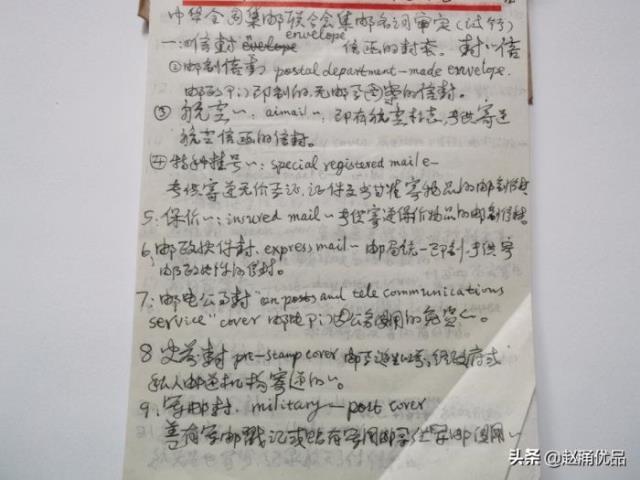 中华全国集邮联合会集邮名词审定(试行)
envelope
一:信封 envelope 信函的封套。封~信
②邮制信封 postal department-made envelope.
邮政部门印制的,无邮资图案的信封。
③ 航空~: aimail~; 印有航空标志,专供寄递
航空信函的信封。
④特种挂号~: special registered mail e~
专供寄递无价证、证件及当准寄物品的邮制信封
5:保价~: insured mail~ 专供寄递保价物品的邮制信封.
6.邮政快件封. express mail~ 邮局统一印制,专供寄
邮政快件的信封。
7:邮电公事封 "on posts and tele communications
service" cover 邮电部门因公务使用的免资~。
8 史前封 pre-stamp cover 邮票诞生以前,经政府或
私人邮递机构寄递的~。
9:军邮封. military-post cover
盖有军邮戳记或贴有军用邮票供军邮使用~
头条@赵桶优品